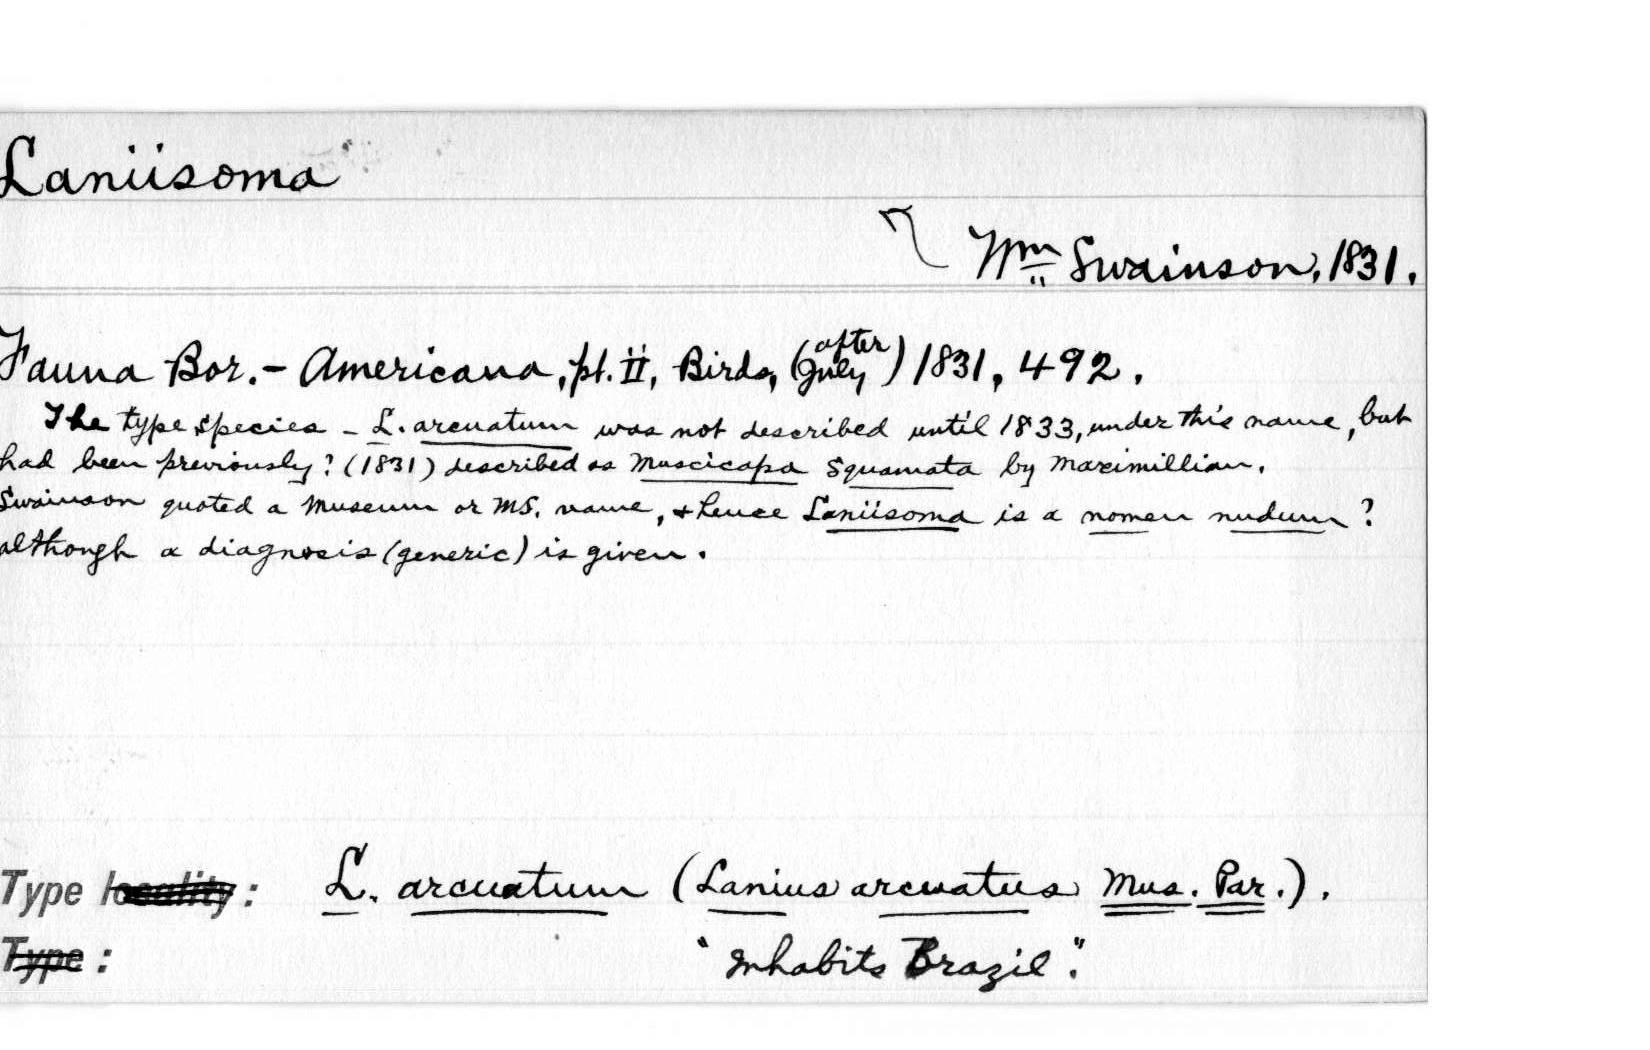 Laniisoma
Wm Swainson, 1831.
after
Fauna Bor.- Americana, pt. II, Birds, (July) 1831, 492.
The type species - L. arcuatum was not described until 1833, under this name, but
had been previously? (1831) described as Muscicapa squamata by Maximillian.
Swainson quoted a Museum or MS. name, & hence Laniisoma is a nomen nudum?
although a diagnosis (generic) is given.
Type locality: L. arcuatum (Lanius arcuatus Mus. Par.).
Type: "Inhabits Brazil".